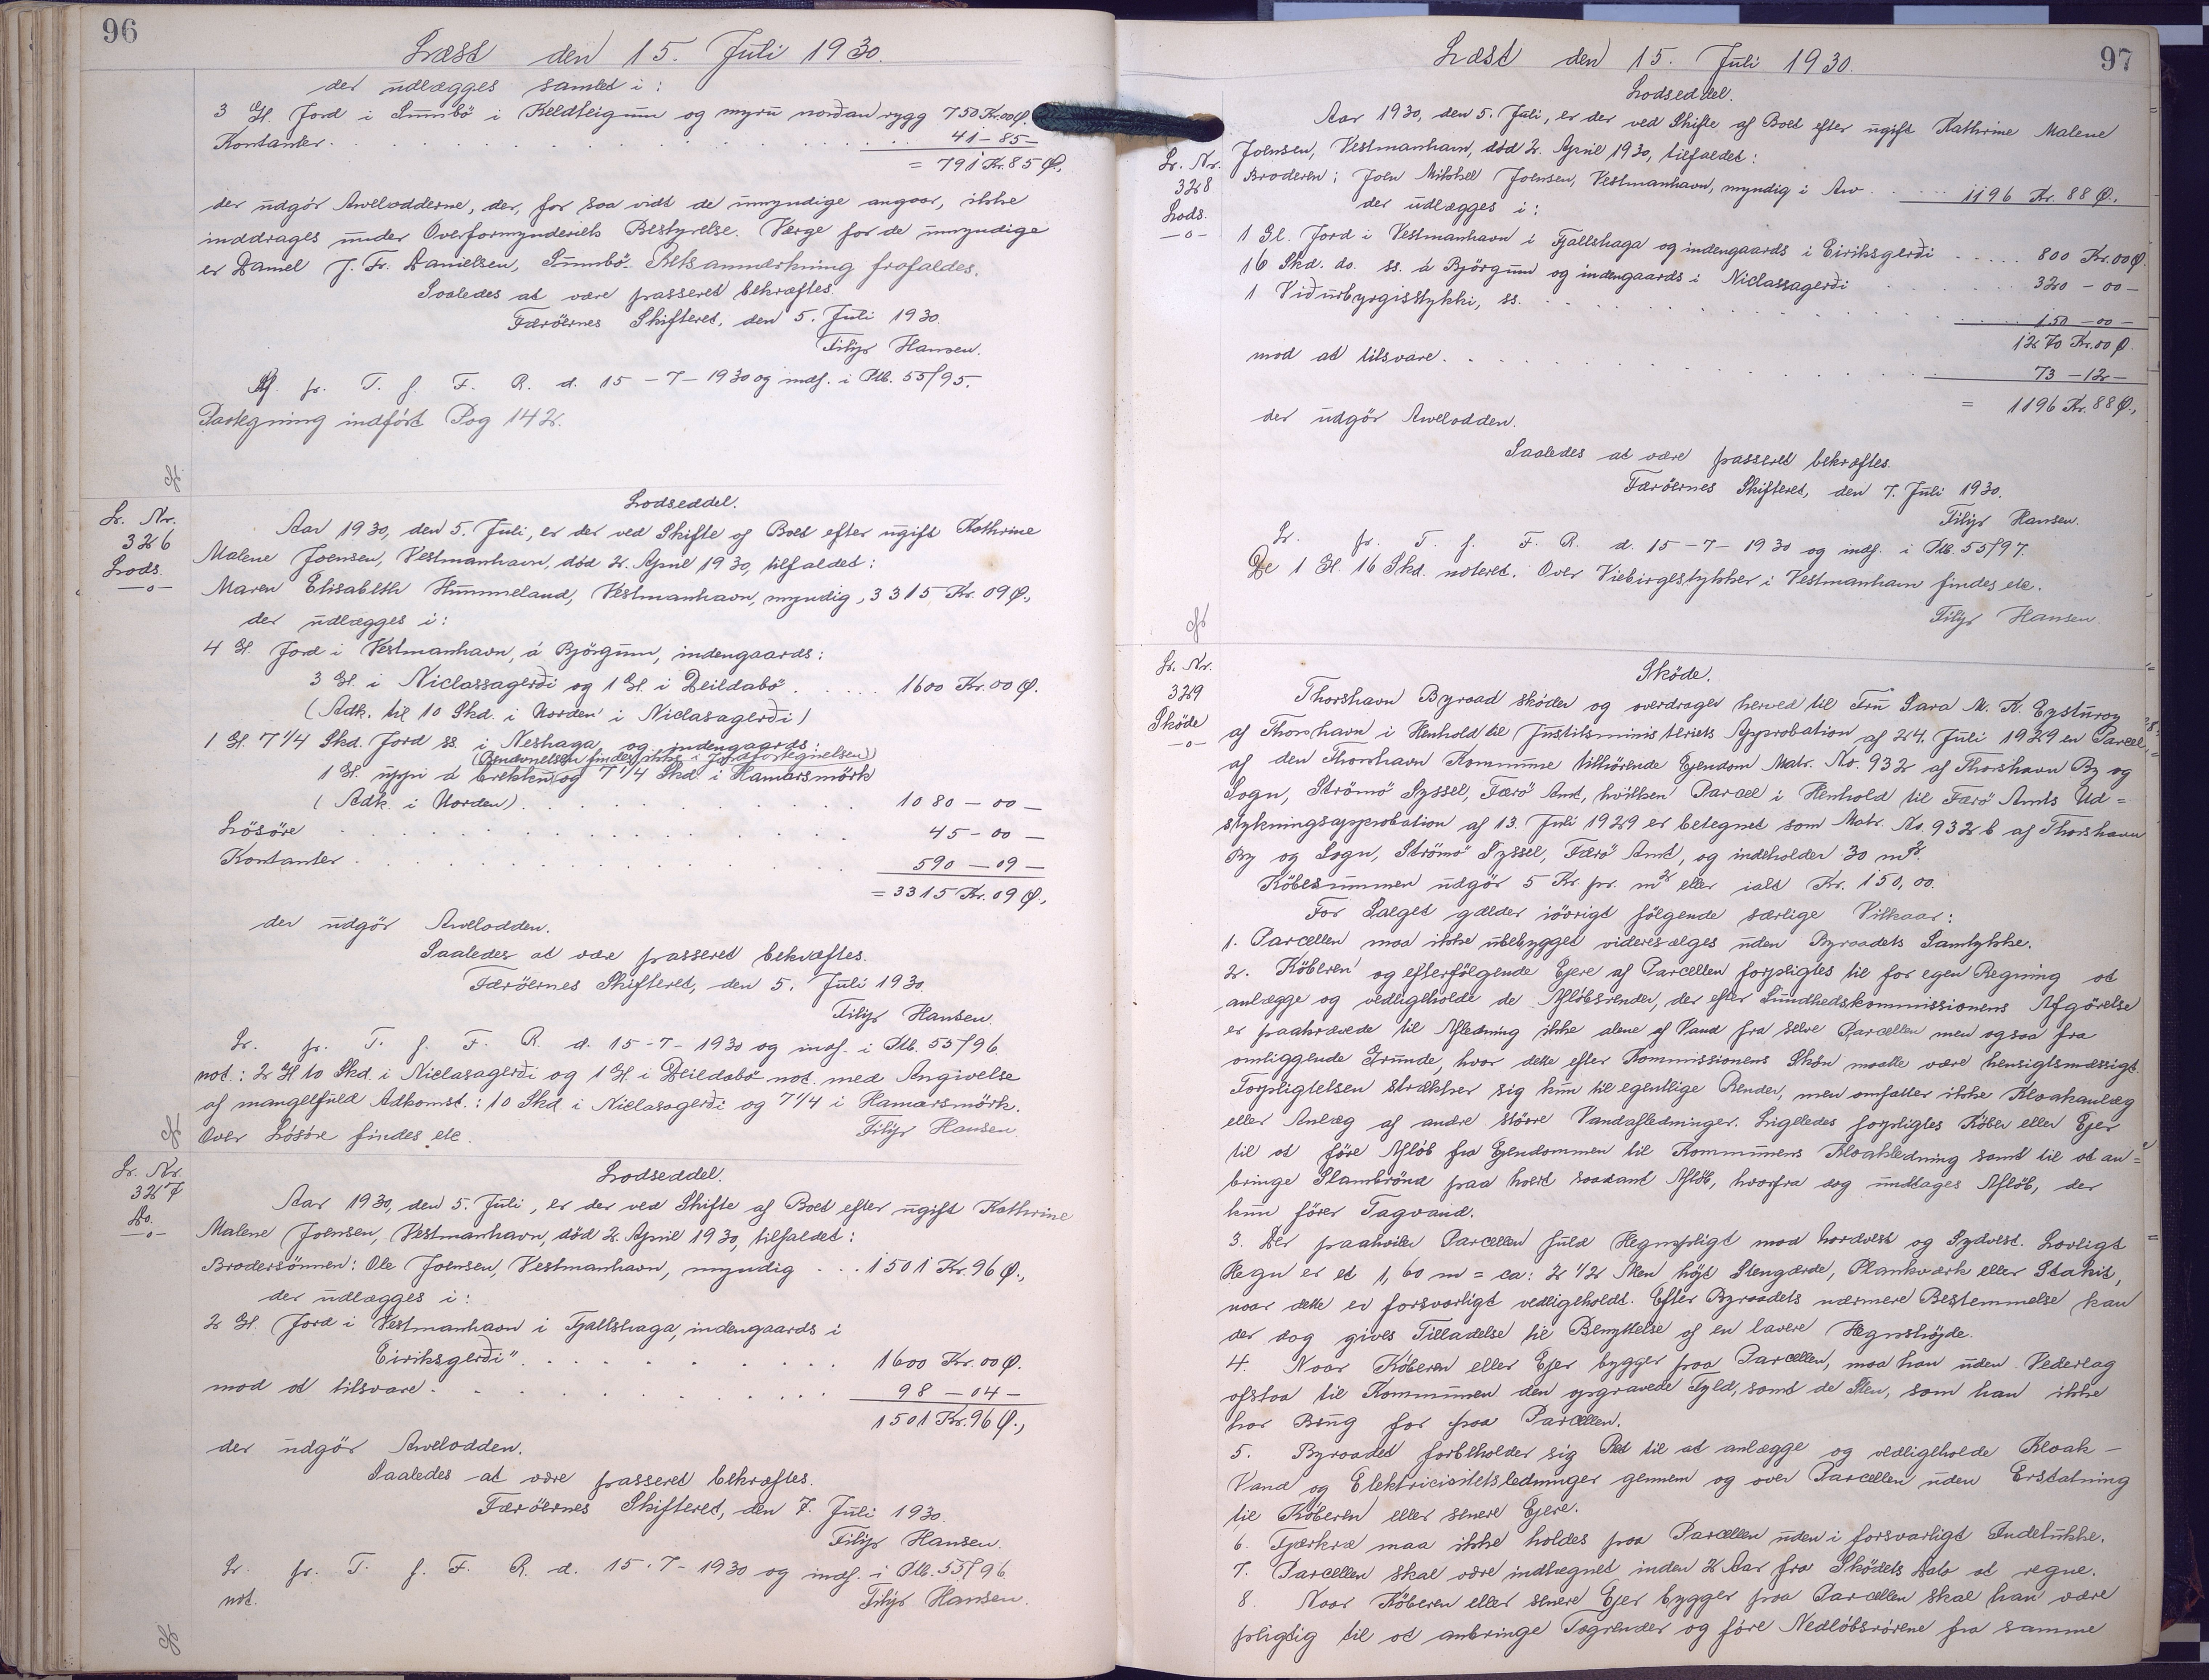 96
Læst den 15. Juli 1930.
der udlægges samlet i:
3 Gl. Jord i Sumbö i Keldteigum og myru nordan rygg 750 Kr. 00 Ø.
Kontanter . . . 41 - 85 -
= 791 Kr. 85 Ø.,
der udgör Arvelodderne, der, for saa vidt de umyndige angaar, ikke
inddrages under Overformynderiets Bestyrelse. Værge for de umyndige
er Daniel J. Fr. Danielsen, Sumbö. Retsanmærkning frafaldes.
Saaledes at være passeret bekræftes.
Færöernes Skifteret, den 5. Juli 1930.
Filip Hansen.
Af. fr. T. f. F. R. d. 15-7-1930 og indf. i Ptb. 55/95.
Paategning indført Pag 142.
Lr. Nr.
326
Lods.
-o-
Lodseddel.
Aar 1930, den 5. Juli, er der ved Skifte af Boet efter ugift Kathrine
Malene Joensen, Vestmanhavn, död 2. April 1930, tilfaldet:
Maren Elisabeth Hummeland, Vestmanhavn, myndig, 3315 Kr. 09 Ø.,
der udlægges i:
4 Gl. Jord i Vestmanhavn, á Björgum, indengaards:
3 Gl. i Niclassagerði og 1 Gl. i Deildabö . . . 1600 Kr. 00 Ø.
(Adk. til 10 Skd. i Uorden i Niclasagerði)
1 Gl. 7 1/4 Skd. Jord ss. i Neshaga og indengaards:
(Benævnelsen findes ikke i Jordfortegnelsen)
1 Gl. uppi á brekku og 7 1/4 Skd. i Hamarsmörk
(Adk. i Uorden) . . . 1080 - 00 -
Lösöre . . . 45 - 00 -
Kontanter . . . 590 - 09 -
= 3315 Kr. 09 Ø.,
der udgör Arvelodden.
Saaledes at være passeret bekræftes.
Færöernes Skifteret, den 5. Juli 1930.
Filip Hansen.
Lr. fr. T. f. F. R. d. 15-7-1930 og indf. i Ptb. 55/96.
not.: 2 Gl 10 Skd. i Niclasagerði og 1 Gl. i Deildabö not. med Angivelse
af mangelfuld Adkomst.: 10 Skd. i Niclasagerði og 7 1/4 i Hamarsmörk.
Over Lösöre findes etc.
Filip Hansen.
Lr. Nr.
327
Do.
-o-
Lodseddel.
Aar 1930, den 5. Juli, er der ved Skifte af Boet efter ugift Kathrine
Malene Joensen, Vestmanhavn, död 2. April 1930, tilfaldet:
Brodersönnen: Ole Joensen, Vestmanhavn, myndig . . . 1501 Kr. 96 Ø.,
der udlægges i:
2 Gl. Jord i Vestmanhavn i Fjallshaga, indengaards i
Eiriksgerði" . . . 1600 Kr. 00 Ø.
mod at tilsvare . . . 98 - 04 -
1501 Kr. 96 Ø.,
der udgör Arvelodden.
Saaledes at være passeret bekræftes.
Færöernes Skifteret, den 7. Juli 1930.
Filip Hansen.
Lr. fr. T. f. F. R. d. 15.-7-1930 og indf. i Ptb. 55/96
not.
Filip Hansen.
97
Læst den 15. Juli 1930.
Lodseddel.
Lr. Nr.
328
Lods.
-o-
Aar 1930, den 5. Juli, er der ved Skifte af Boet efter ugift Kathrine Malene
Joensen, Vestmanhavn, död 2. April 1930, tilfaldet:
Broderen: Joen Mikkel Joensen, Vestmanhavn, myndig i Arv . . . 1196 Kr. 88 Ø.,
der udlægges i:
1 Gl. Jord i Vestmanhavn i Fjallshaga og indengaards i Eiriksgerði . . . 800 Kr. 00 Ø.
16 Skd. do. ss. á Björgum og indengaards i Niclassagerði . . . 320 - 00 -
1 Viðurbyrgisstykki, ss. . . . 150 - 00 -
1270 Kr. 00 Ø.
mod at tilsvare . . . 73 - 12 -
= 1196 Kr. 88 Ø.,
der udgör Arvelodden.
Saaledes at være passeret bekræftes.
Færöernes Skifteret, den 7. Juli 1930.
Filip Hansen.
Lr. fr. T. f. F. R. d. 15-7-1930 og indf. i Ptb. 55/97.
De 1 Gl. 16 Skd. noteret. Over Viebirgestykker i Vestmanhavn findes etc.
Filip Hansen.
Lr. Nr.
329
Sköde
-o-
Sköde.
Thorshavn Byraad sköder og overdrager herved til Fru Sara M. K. Eysturoy
af Thorshavn i Henhold til Justitsministeriets Approbation af 24. Juli 1929 en Parcel
af den Thorshavn Kommune tilhörende Ejendom Matr. No. 932 af Thorshavn By og
Sogn, Strömö Syssel, Færö Amt, hvilken Parcel i Henhold til Færö Amts Ud=
stykningsapprobation af 13. Juli 1929 er betegnet som Matr. No. 932 b af Thorshavn
By og Sogn, Strömö Syssel, Færö Amt, og indeholder 30 m2.
Köbesummen udgör 5 Kr. pr. m2 eller ialt Kr. 150,00.
For Salget gælder iövrigt fölgende særlige Vilkaar:
1. Parcellen maa ikke ubebygget videresælges uden Byraadets Samtykke.
2. Köberen og efterfölgende Ejere af Parcellen forpligtes til for egen Regning at
anlægge og vedligeholde de Aflöbsrender, der efter Sundhedskommissionens Afgörelse
er paakrævede til Afledning ikke alene af Vand fra selve Parcellen men ogsaa fra
omliggende Grunde, hvor dette efter Kommissionens Skön maatte være hensigtsmæssigt.
Forpligtelsen strækker sig kun til egentlige Render, men omfatter ikke Kloakanlæg
eller Anlæg af andre större Vandafledninger. Ligeledes forpligtes Köber eller Ejer
til at före Aflöb fra Ejendommen til Kommunens Kloakledning samt til at an=
bringe Slambrönd paa hvert saadant Aflöb, hvorfra dog undtages Aflöb, der
kun förer Tagvand.
3. Der paahviler Parcellen fuld Hegnspligt mod Nordvest og Sydvest. Lovligt
Hegn er et 1,60 m = ca: 2 1/2 Alen höjt Stengærde, Plankværk eller Stakit,
naar dette er forsvarligt vedligeholdt. Efter Byraadets nærmere Bestemmelse kan
der dog gives Tilladelse til Benyttelse af en lavere Hegnshöjde.
4. Naar Köberen eller Ejer bygger paa Parcellen, maa han uden Vederlag
afstaa til Kommunen den opgravede Fyld, samt de Sten, som han ikke
har Brug for paa Parcellen.
5. Byraadet forbeholder sig Ret til at anlægge og vedligeholde Kloak-
Vand og Elektricisitetsledninger gennem og over Parcellen uden Erstatning
til Köberen eller senere Ejere.
6. Fjærkræ maa ikke holdes paa Parcellen uden i forsvarligt Indelukke.
7. Parcellen skal være indhegnet inden 2 Aar fra Sködets Dato at regne.
8. Naar Köberen eller senere Ejer bygger paa Parcellen skal han være
pligtig til at anbringe Tagrender og före Nedlöbsrörene fra samme